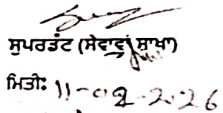 ਸੁਪਰਡੰਟ (ਸੇਵਾਵਾਂ ਸ਼ਾਖਾ)
ਮਿਤੀ: 11-02-2026